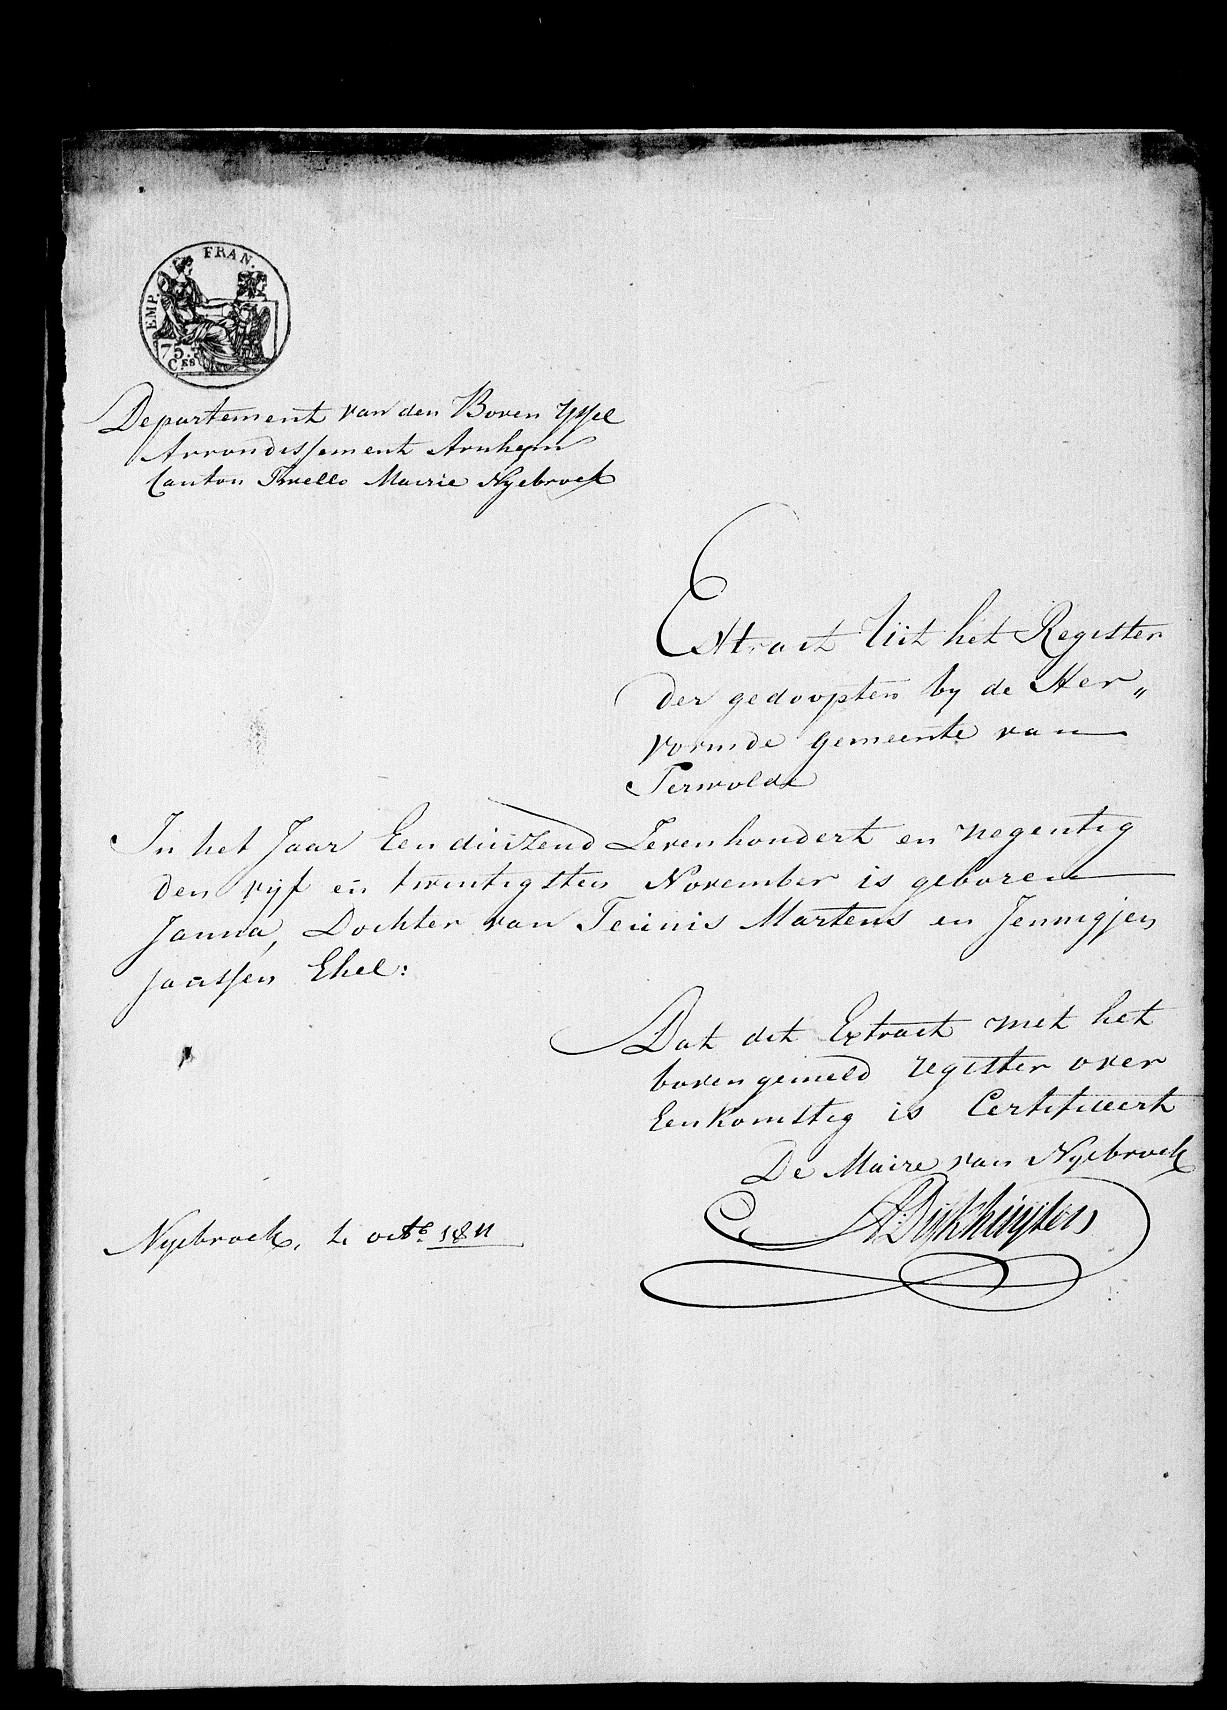 EMP. FRAN.
75.
CES
Departement van den Boven Yssel
Arrondissement Arnhem
Canton Twello Mairie Nyebroek
Extract Uit het Register
der gedoopten by de Her„
vormde gemeente van
Terwolde
In het Jaar Een duizend Zevenhondert en Negentig
den vyf en twintigsten November is geboren
Janna, Dochter van Teunis Martens en Jennigjen
Janssen Ehel:
Dat dit Extract met het
bovengemeld register over
Eenkomstig is Certificeert
De Maire van Nyebroek
A Dijkhuijsen
Nyebroek, octb. 1811